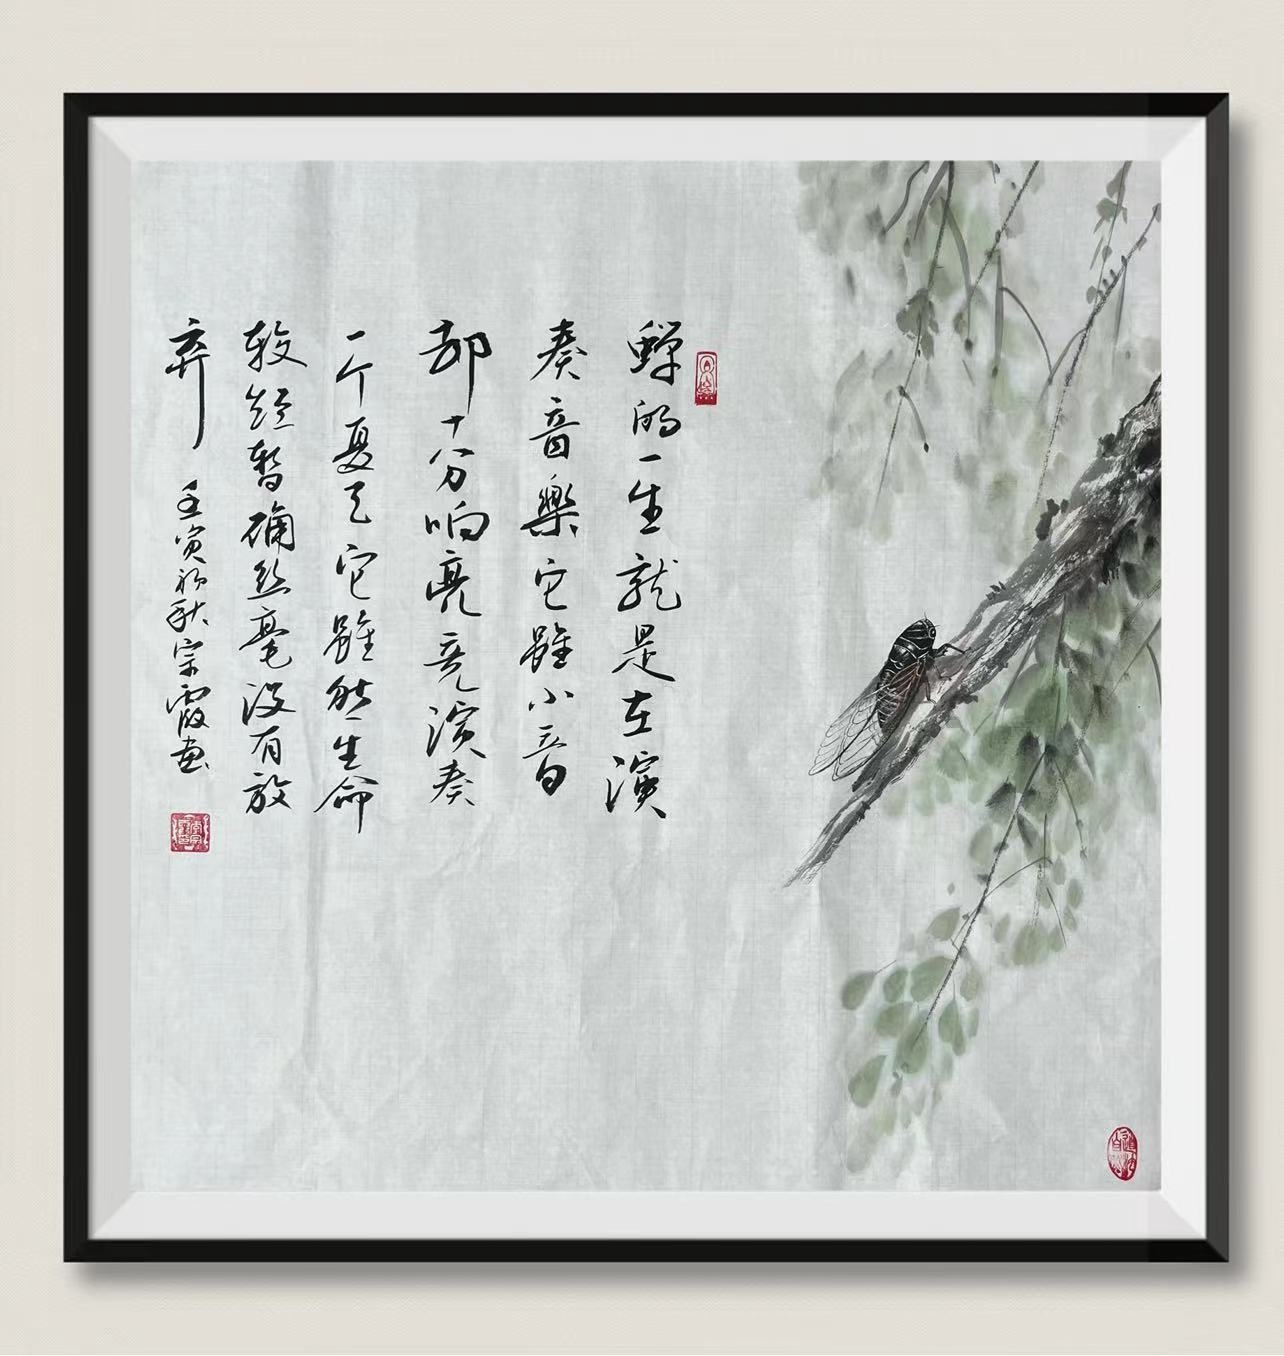 蝉的一生就是在演
奏音樂它雖小音
却十分响亮竟演奏
一个夏天它雖然生命
较短暂确丝毫没有放
弃
壬寅初秋宗霞画